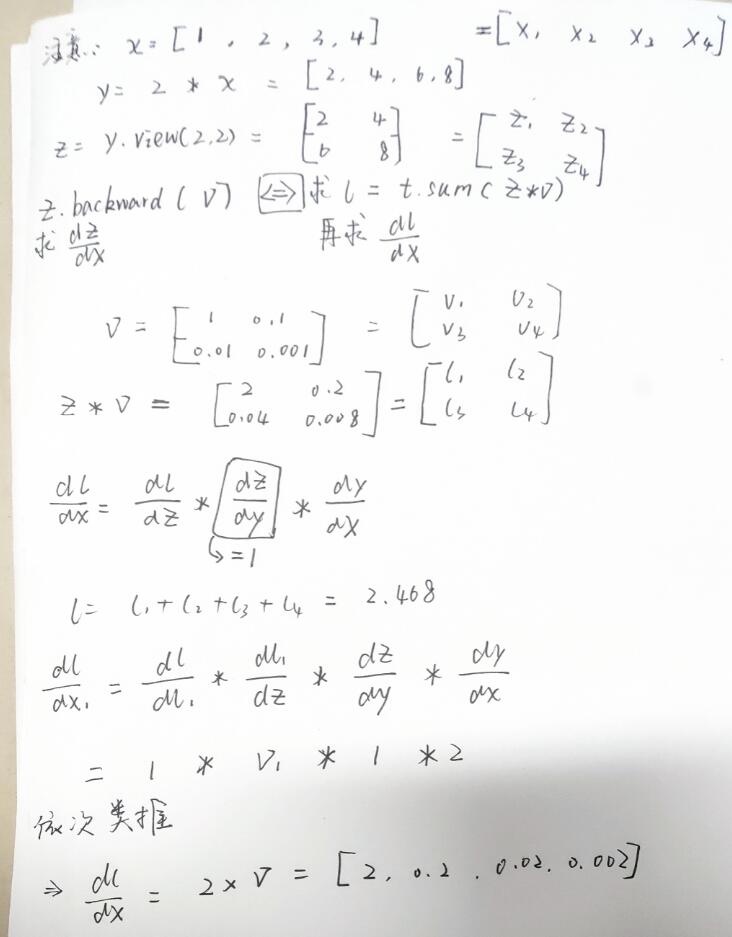 注意: x = [1, 2, 3, 4] = [x₁ x₂ x₃ x₄]
y = 2 * x = [2, 4, 6, 8]
z = y.view(2,2) = [2 4 6 8] = [z₁ z₂ z₃ z₄]
z.backward(v) <=> 求 l = t.sum(z*v)
求 dz/dx 再求 dl/dx
v = [1 0.1 0.01 0.001] = [v₁ v₂ v₃ v₄]
z * v = [2 0.2 0.04 0.008] = [l₁ l₂ l₃ l₄]
dl/dx = dl/dz * dz/dy * dy/dx
↳ = 1
l = l₁ + l₂ + l₃ + l₄ = 2.468
dl/dx₁ = dl/dl₁ * dl₁/dz * dz/dy * dy/dx
= 1 * v₁ * 1 * 2
依次类推
⇒ dl/dx = 2 × v = [2, 0.2, 0.02, 0.002]